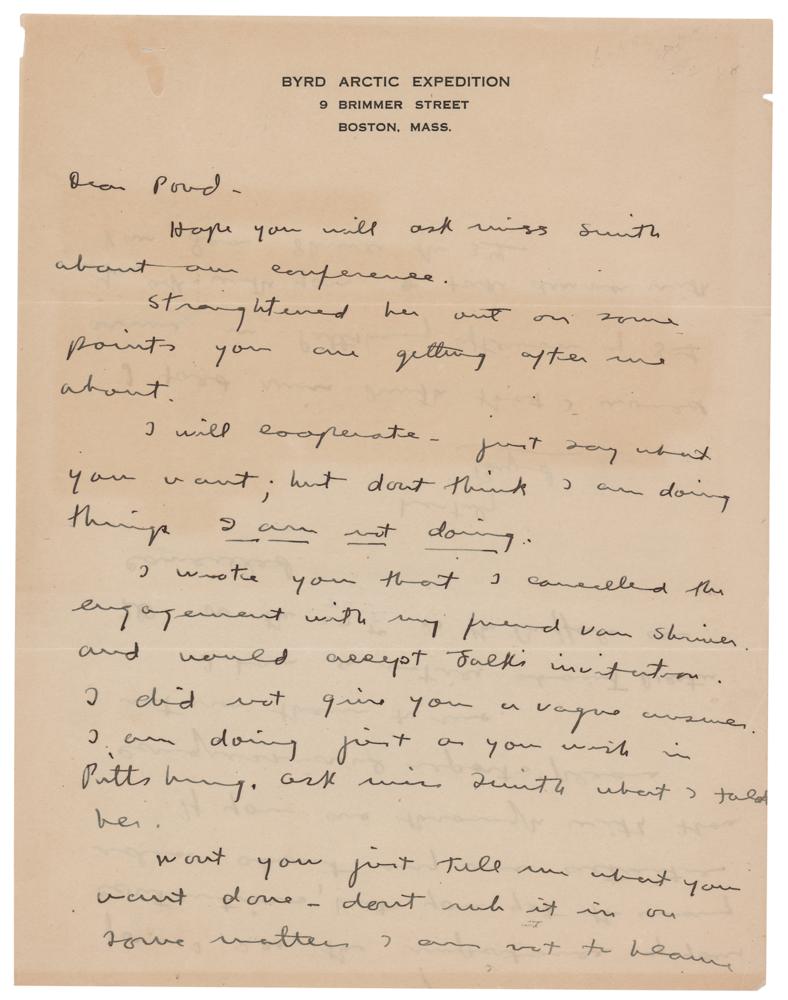 BYRD ARCTIC EXPEDITION
9 BRIMMER STREET
BOSTON, MASS.
Dear Pond -
Hope you will ask miss Smith
about our conference.
Straightened her out on some
points you are getting after me
about.
I will cooperate - just say what
you want; but dont think I am doing
things I am not doing.
I wrote you that I cancelled the
engagement with my friend van
and would accept Falk's invitation.
I did not give you a vague answer.
I am doing just as you wish in
Pittsburg. ask miss Smith what I told
her.
wont you just tell me what you
want done - dont rub it in on
some matters I am not to blame